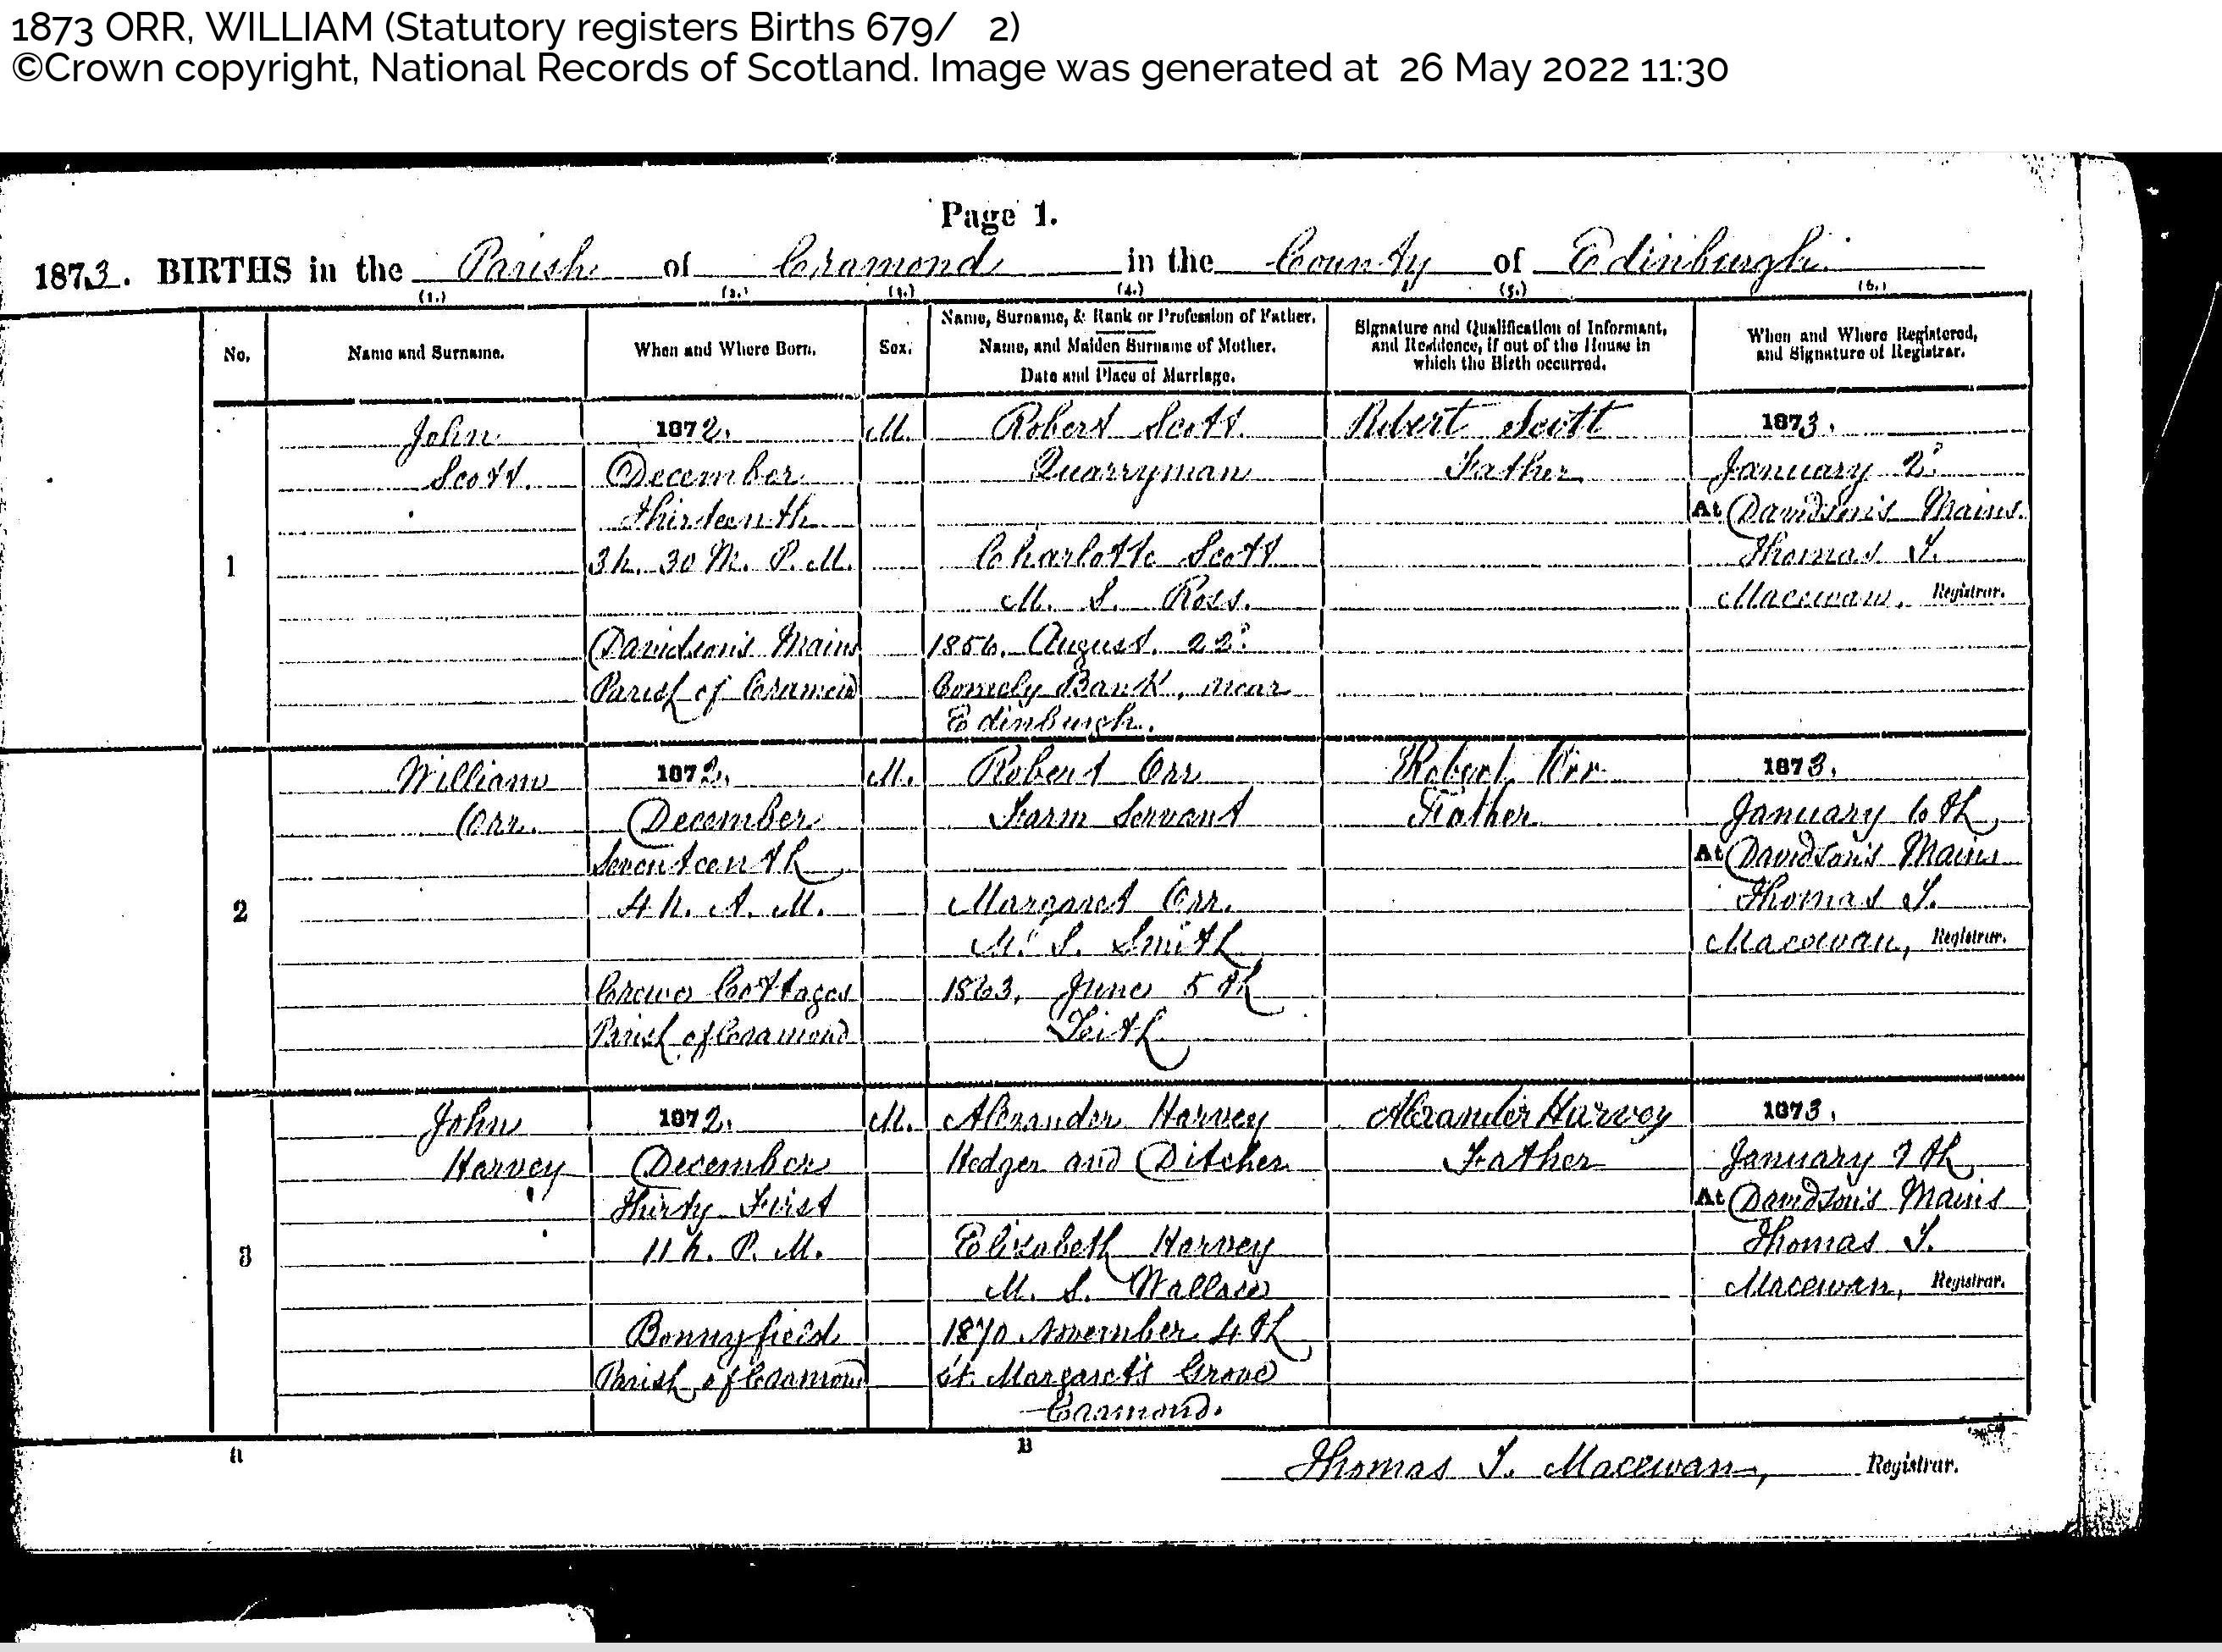 1873 ORR, WILLIAM (Statutory registers Births 679/ 2)
©Crown copyright, National Records of Scotland. Image was generated at 26 May 2022 11:30
Page 1.
1873. BIRTHS in the Parish of Cramond in the County of Edinburgh.
(1.) (2.) (3.) (4.) (5.) (6.)
No.
Name and Surname.
When and Where Born.
Sex.
Name, Surname, & Rank or Profession of Father.
Name, and Maiden Surname of Mother.
Date and Place of Marriage.
Signature and Qualification of Informant,
and Residence, if out of the House in
which the Birth occurred.
When and Where Registered,
and Signature of Registrar.
1
John
Scott.
1872.
December
Thirteenth
3h. 30 M. P. M.
Davidson's Mains
Parish of Cramond
M.
Robert Scott.
Quarryman
Charlotte Scott
M. S. Ross.
1856. August. 22d.
Comely Bank, near
Edinburgh.
Robert Scott
Father
1873.
January 2d
At Davidson's Mains.
Thomas T.
Macewan, Registrar.
2
William
Orr.
1872.
December
Seventeenth
4 h. A. M.
Crewe Cottages
Parish of Cramond
M.
Robert Orr
Farm Servant
Margaret Orr.
M. S. Smith
1863, June 5th
Leith
Robert Orr
Father
1873.
January 6th
At Davidson's Mains
Thomas T.
Macewan, Registrar.
3
John
Harvey
1872.
December
Thirty First
11 h. P. M.
Bonnyfield
Parish of Cramond
M.
Alexander Harvey
Hedger and Ditcher
Elizabeth Harvey
M. S. Wallace
1870. November 4th
St. Margaret's Grove
Cramond.
Alexander Harvey
Father
1873.
January
At Davidson's Mains
Thomas T.
Macewan, Registrar.
B
Thomas T. Macewan, Registrar.